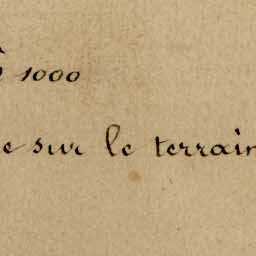 à 1000
e sur le terrain